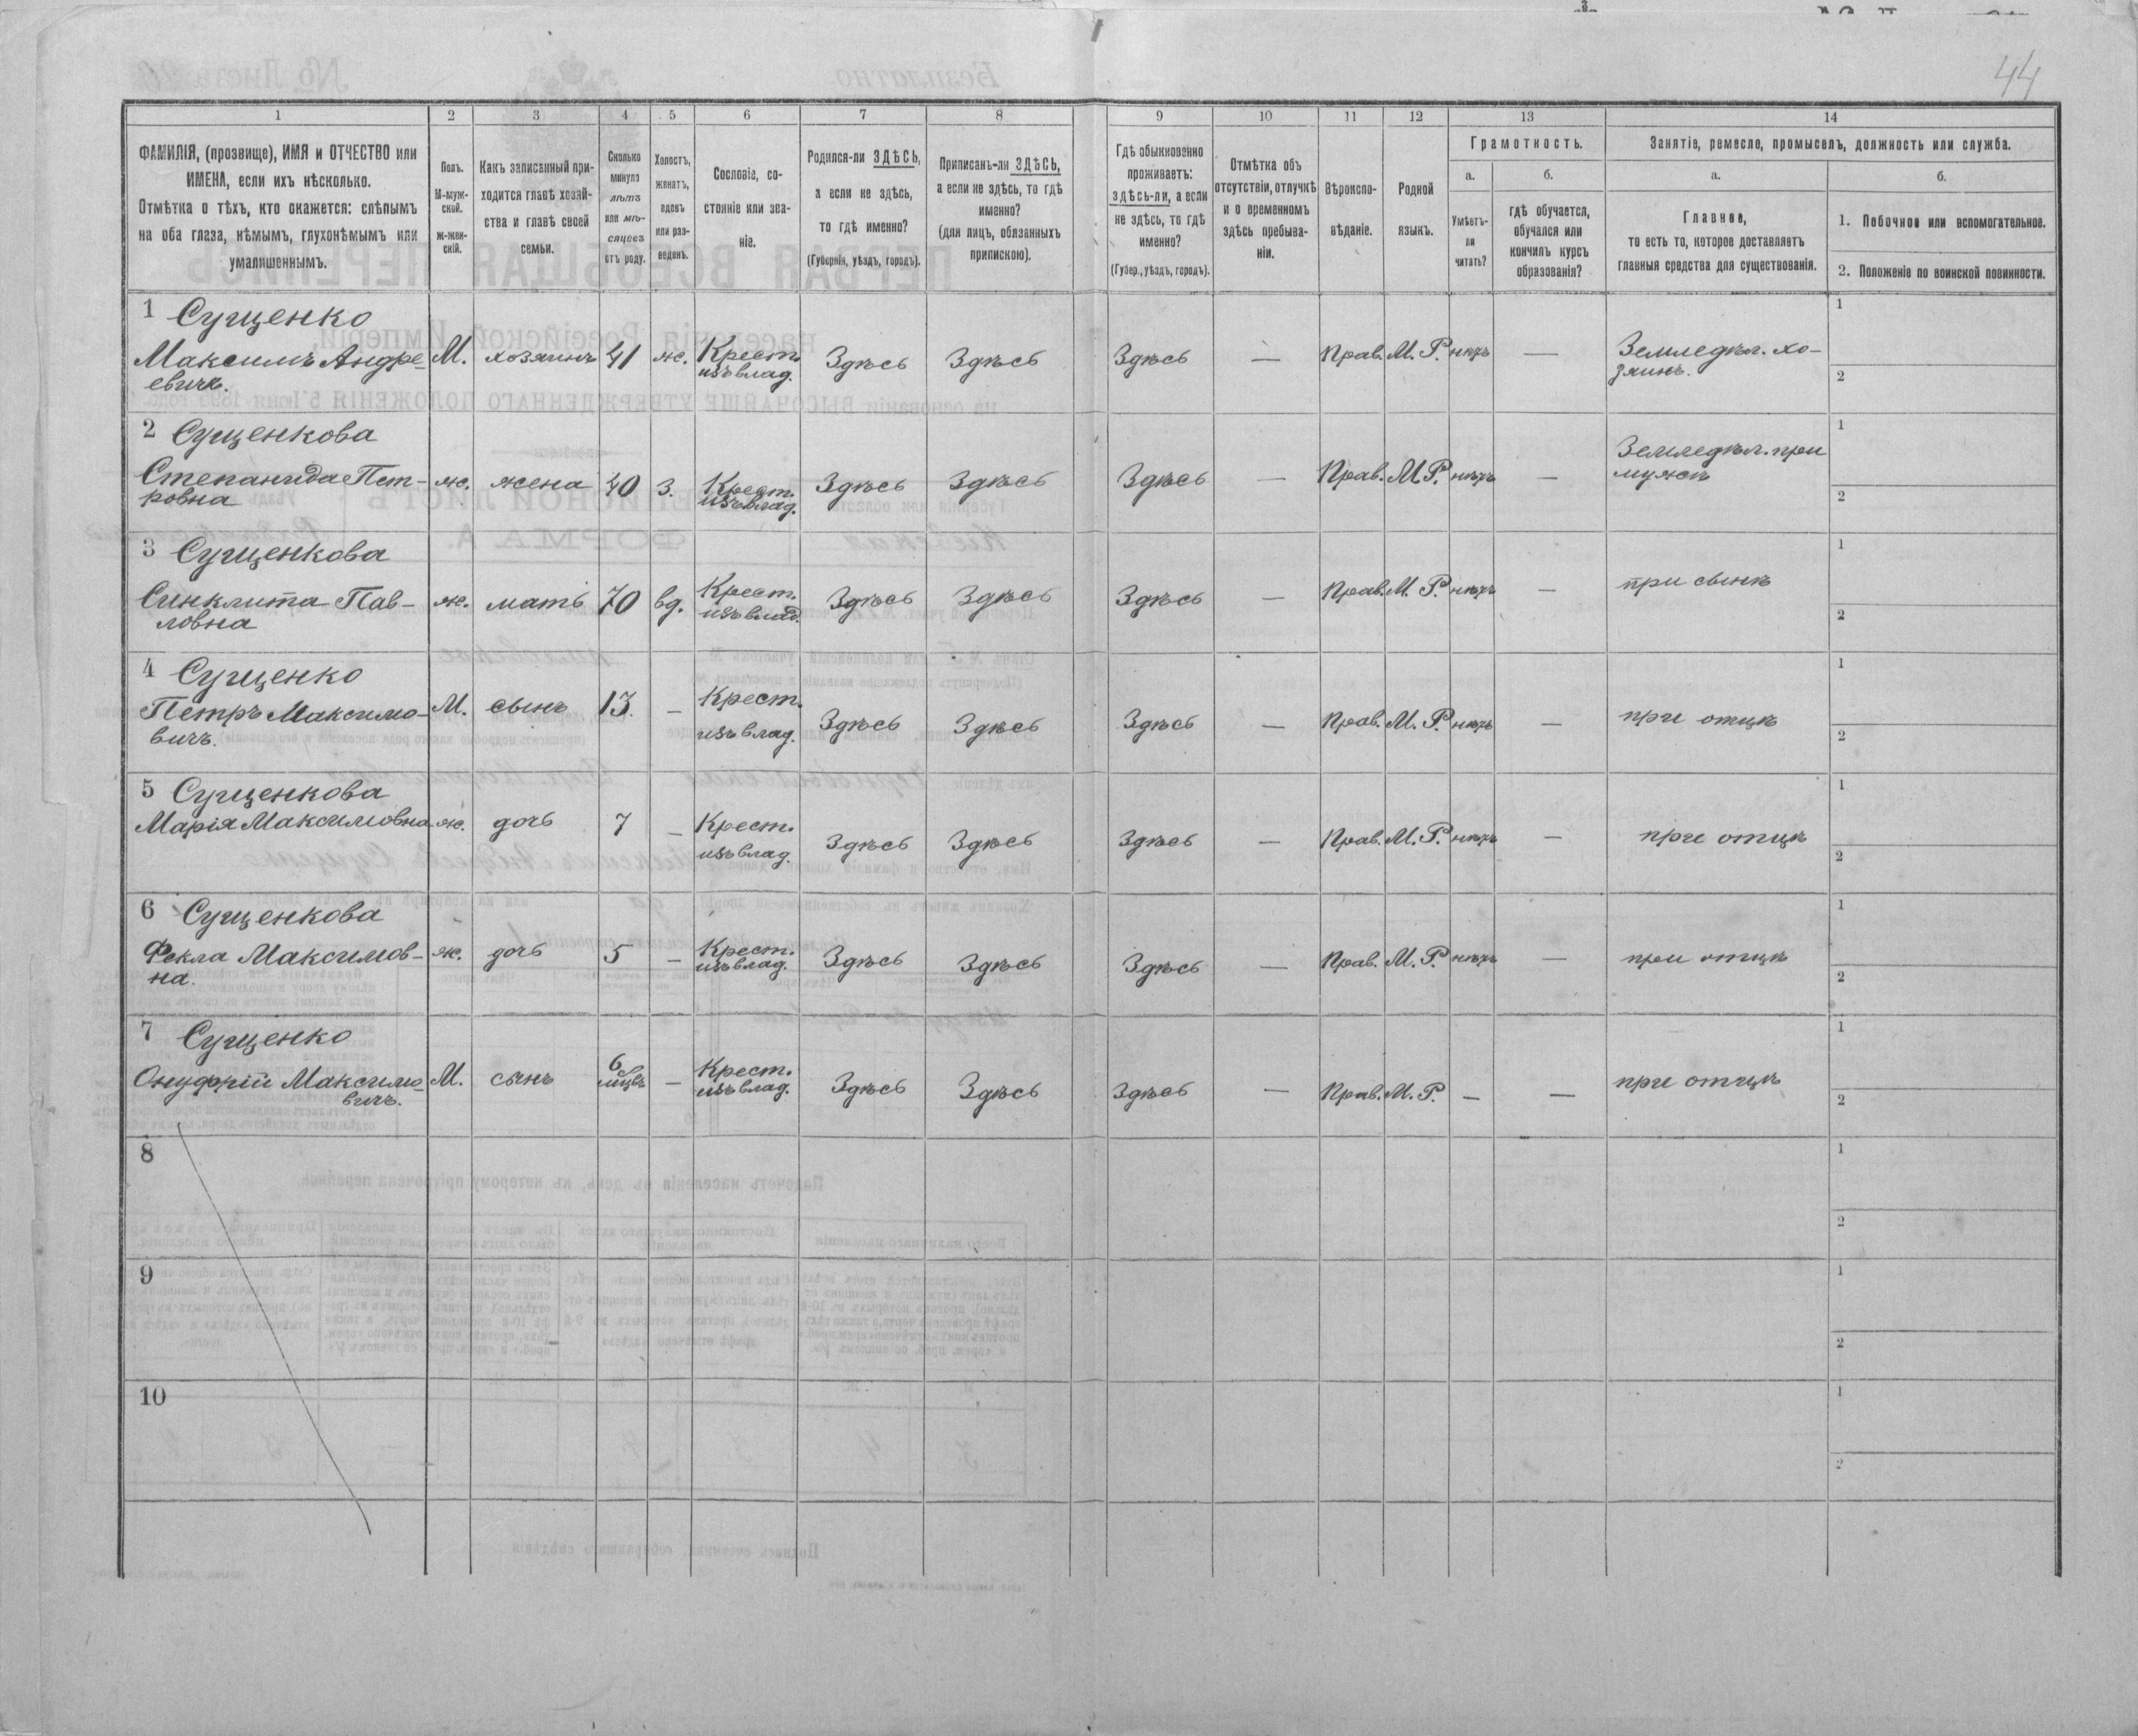 44
1 2 3 4 5 6 7 8 9 10 11 12 13 14
ФАМИЛІЯ, (прозвище), ИМЯ и ОТЧЕСТВО или
ИМЕНА, если ихъ нѣсколько.
Отмѣтка о тѣхъ, кто окажется: слѣпымъ
на оба глаза, нѣмымъ, глухонѣмымъ или
умалишеннымъ.
Полъ.
М-муж-
ской.
ж-жен-
скій.
Какъ записанный при-
ходится главѣ хозяй-
ства и главѣ своей
семьи.
Сколько
минуло
лѣтъ
или мѣ-
сяцевъ
отъ роду.
Холостъ,
женатъ,
вдовъ
или раз-
веденъ.
Сословіе, со-
стояніе или зва-
ніе.
Родился-ли ЗДѢСЬ,
а если не здѣсь,
то гдѣ именно?
(Губернія, уѣздъ, городъ).
Приписанъ-ли ЗДѢСЬ,
а если не здѣсь, то гдѣ
именно?
(для лицъ, обязанныхъ
припискою).
Гдѣ обыкновенно
проживаетъ:
здѣсь-ли, а если
не здѣсь, то гдѣ
именно?
(Губер., уѣздъ, городъ).
Отмѣтка объ
отсутствіи, отлучкѣ
и о временномъ
здѣсь пребыва-
ніи.
Вѣроиспо-
вѣданіе.
Родной
языкъ.
Грамотность.
а.
Умѣетъ-
ли
читать?
б.
гдѣ обучается,
обучался или
кончилъ курсъ
образованія?
Занятіе, ремесло, промыселъ, должность или служба.
а.
Главное,
то есть то, которое доставляетъ
главныя средства для существованія.
б.
1. Побочное или вспомогательное.
2. Положеніе по воинской повинности.
1 Сущенко
Максимъ Андре-
евичъ.
М. хозяинъ 41 ж. Крест.
изъ влад.
Здѣсь Здѣсь Здѣсь — Прав. М. Р. нѣтъ — Земледѣл. хо-
зяинъ.
1
2
2 Сущенкова
Степанида Пет-
ровна
ж. жена 40 З. Крест.
изъ влад.
Здѣсь Здѣсь Здѣсь — Прав. М. Р. нѣтъ — Земледѣл. при
мужѣ
1
2
3 Сущенкова
Синклита Пав-
ловна
ж. мать 70 вд. Крест.
изъ влад.
Здѣсь Здѣсь Здѣсь — Прав. М. Р. нѣтъ — при сынѣ
1
2
4 Сущенко
Петръ Максимо-
вичъ.
М. сынъ 13. — Крест.
изъ влад.
Здѣсь Здѣсь Здѣсь — Прав. М. Р. нѣтъ — при отцѣ
1
2
5 Сущенкова
Марія Максимовна
ж. дочь 7 — Крест.
изъ влад.
Здѣсь Здѣсь Здѣсь — Прав. М. Р. нѣтъ — при отцѣ
1
2
6 Сущенкова
Фекла Максимов-
на.
ж. дочь 5 — Крест.
изъ влад.
Здѣсь Здѣсь Здѣсь — Прав. М. Р. нѣтъ — при отцѣ
1
2
7 Сущенко
Онуфрій Максимо
вичъ.
М. сынъ 6
мцвъ — Крест.
изъ влад.
Здѣсь Здѣсь Здѣсь — Прав. М. Р. — — при отцѣ
1
2
8
1
2
9
1
2
10
1
2